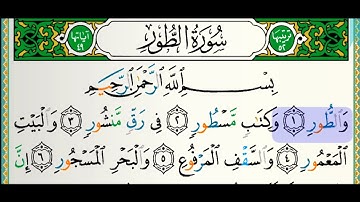 ترتيبها ٥٢ سُورَةُ الطُّورِ آياتها ٤٩
بِسْمِ اللَّهِ الرَّحْمَٰنِ الرَّحِيمِ
وَالطُّورِ ١ وَكِتَابٍ مَّسْطُورٍ ٢ فِي رَقٍّ مَّنشُورٍ ٣ وَالْبَيْتِ
الْمَعْمُورِ ٤ وَالسَّقْفِ الْمَرْفُوعِ ٥ وَالْبَحْرِ الْمَسْجُورِ ٦ إِنَّ